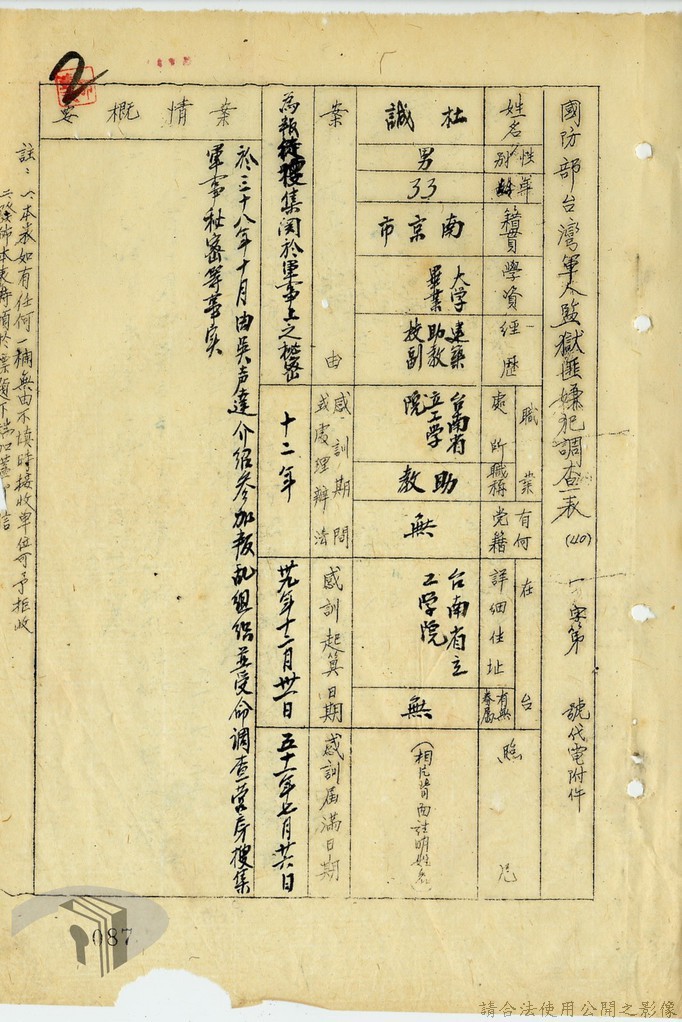 國防部台灣軍人監獄匪嫌犯調查表 (40) 字第 號代電附件
姓名 性別 年齡 籍貫 學資 經歷 職業 處所 職稱 有何党籍 在台 詳細住址 有無眷屬 照片
杜誠 男 33 南京市 大学畢業 建築助教技副 台南省立工学院 助教 無 台南省立工学院 無 (相片背面註明姓名)
案由 感訓期間或處理辦法 感訓起算日期 感訓届滿日期
為叛徒搜集関於軍事上之秘密 十二年 卅九年十二月卅一日 五十一年七月廿六日
案情概要
於三十八年十月由吳声達介紹參加叛乱組織並受命調查営房搜集
軍事秘密等事实
註：一、本表如有任何一欄無由不填時接收單位可予拒收
2
087
請合法使用公開之影像